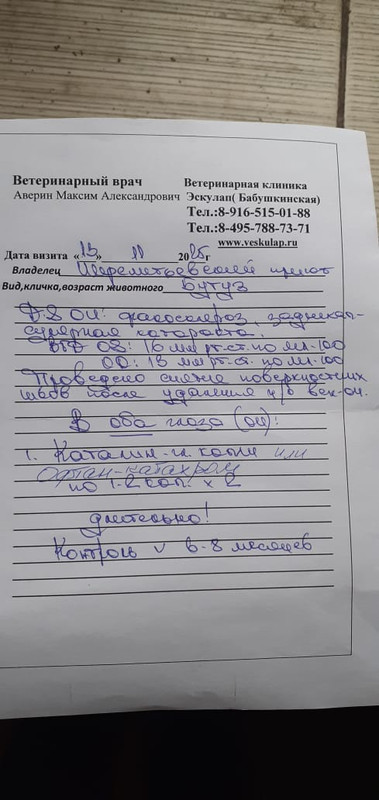 Ветеринарный врач Ветеринарная клиника
Аверин Максим Александрович Эскулап( Бабушкинская)
Тел.:8-916-515-01-88
Тел.:8-495-788-73-71
www.veskulap.ru
Дата визита «13» 11 2025г
Владелец Шереметьевский приют
Вид,кличка,возраст животного Бутуз
D-S OU: факосклероз, заднекап-
сулярная катаракта,
ВГД OS: 16 мм рт.ст. по
OD: 13 мм рт.ст. по
Проведено снятие поверхностных
швов после удаления н/о век-ой.
В оба глаза (OU):
1. Каталин-к капли или
Офтан-катахром
по 1-2 кап. х 2
длительно!
Контроль 6-8 месяцев